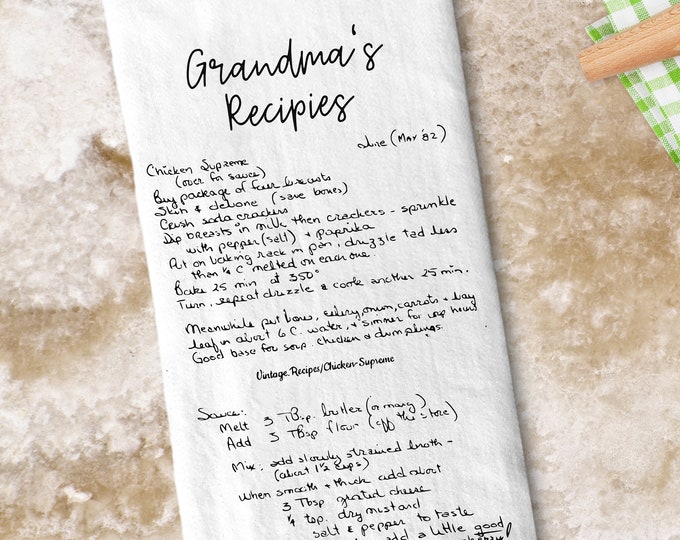 Grandma's
Recipies
June (MAY '82)
Chicken Supreme
(over for sauce)
Buy package of four breasts
Skin & debone (save bones)
Crush soda crackers
Dip breasts in milk then crackers - sprinkle
with pepper (salt) + paprika
Put on baking rack in pan, drizzle tad less
than ¼ C melted on each one.
Bake 25 min at 350°
Turn, repeat drizzle & cook another 25 min.
Meanwhile put bones, celery, onion, carrots + bay
leaf in about 6 C. water, + simmer for hour
Good base for soup, chicken & dumplings.
Vintage.Recipes/Chicken-Supreme
Sauce:
Melt 3 Tbsp. butter (or marg)
Add 3 Tbsp flour (off the stove)
Mix: add slowly strained broth -
(about 1½ cups)
when smooth + thick add about
3 Tbsp grated cheese
¼ tsp. dry mustard
salt & pepper to taste
add a little good
sherry